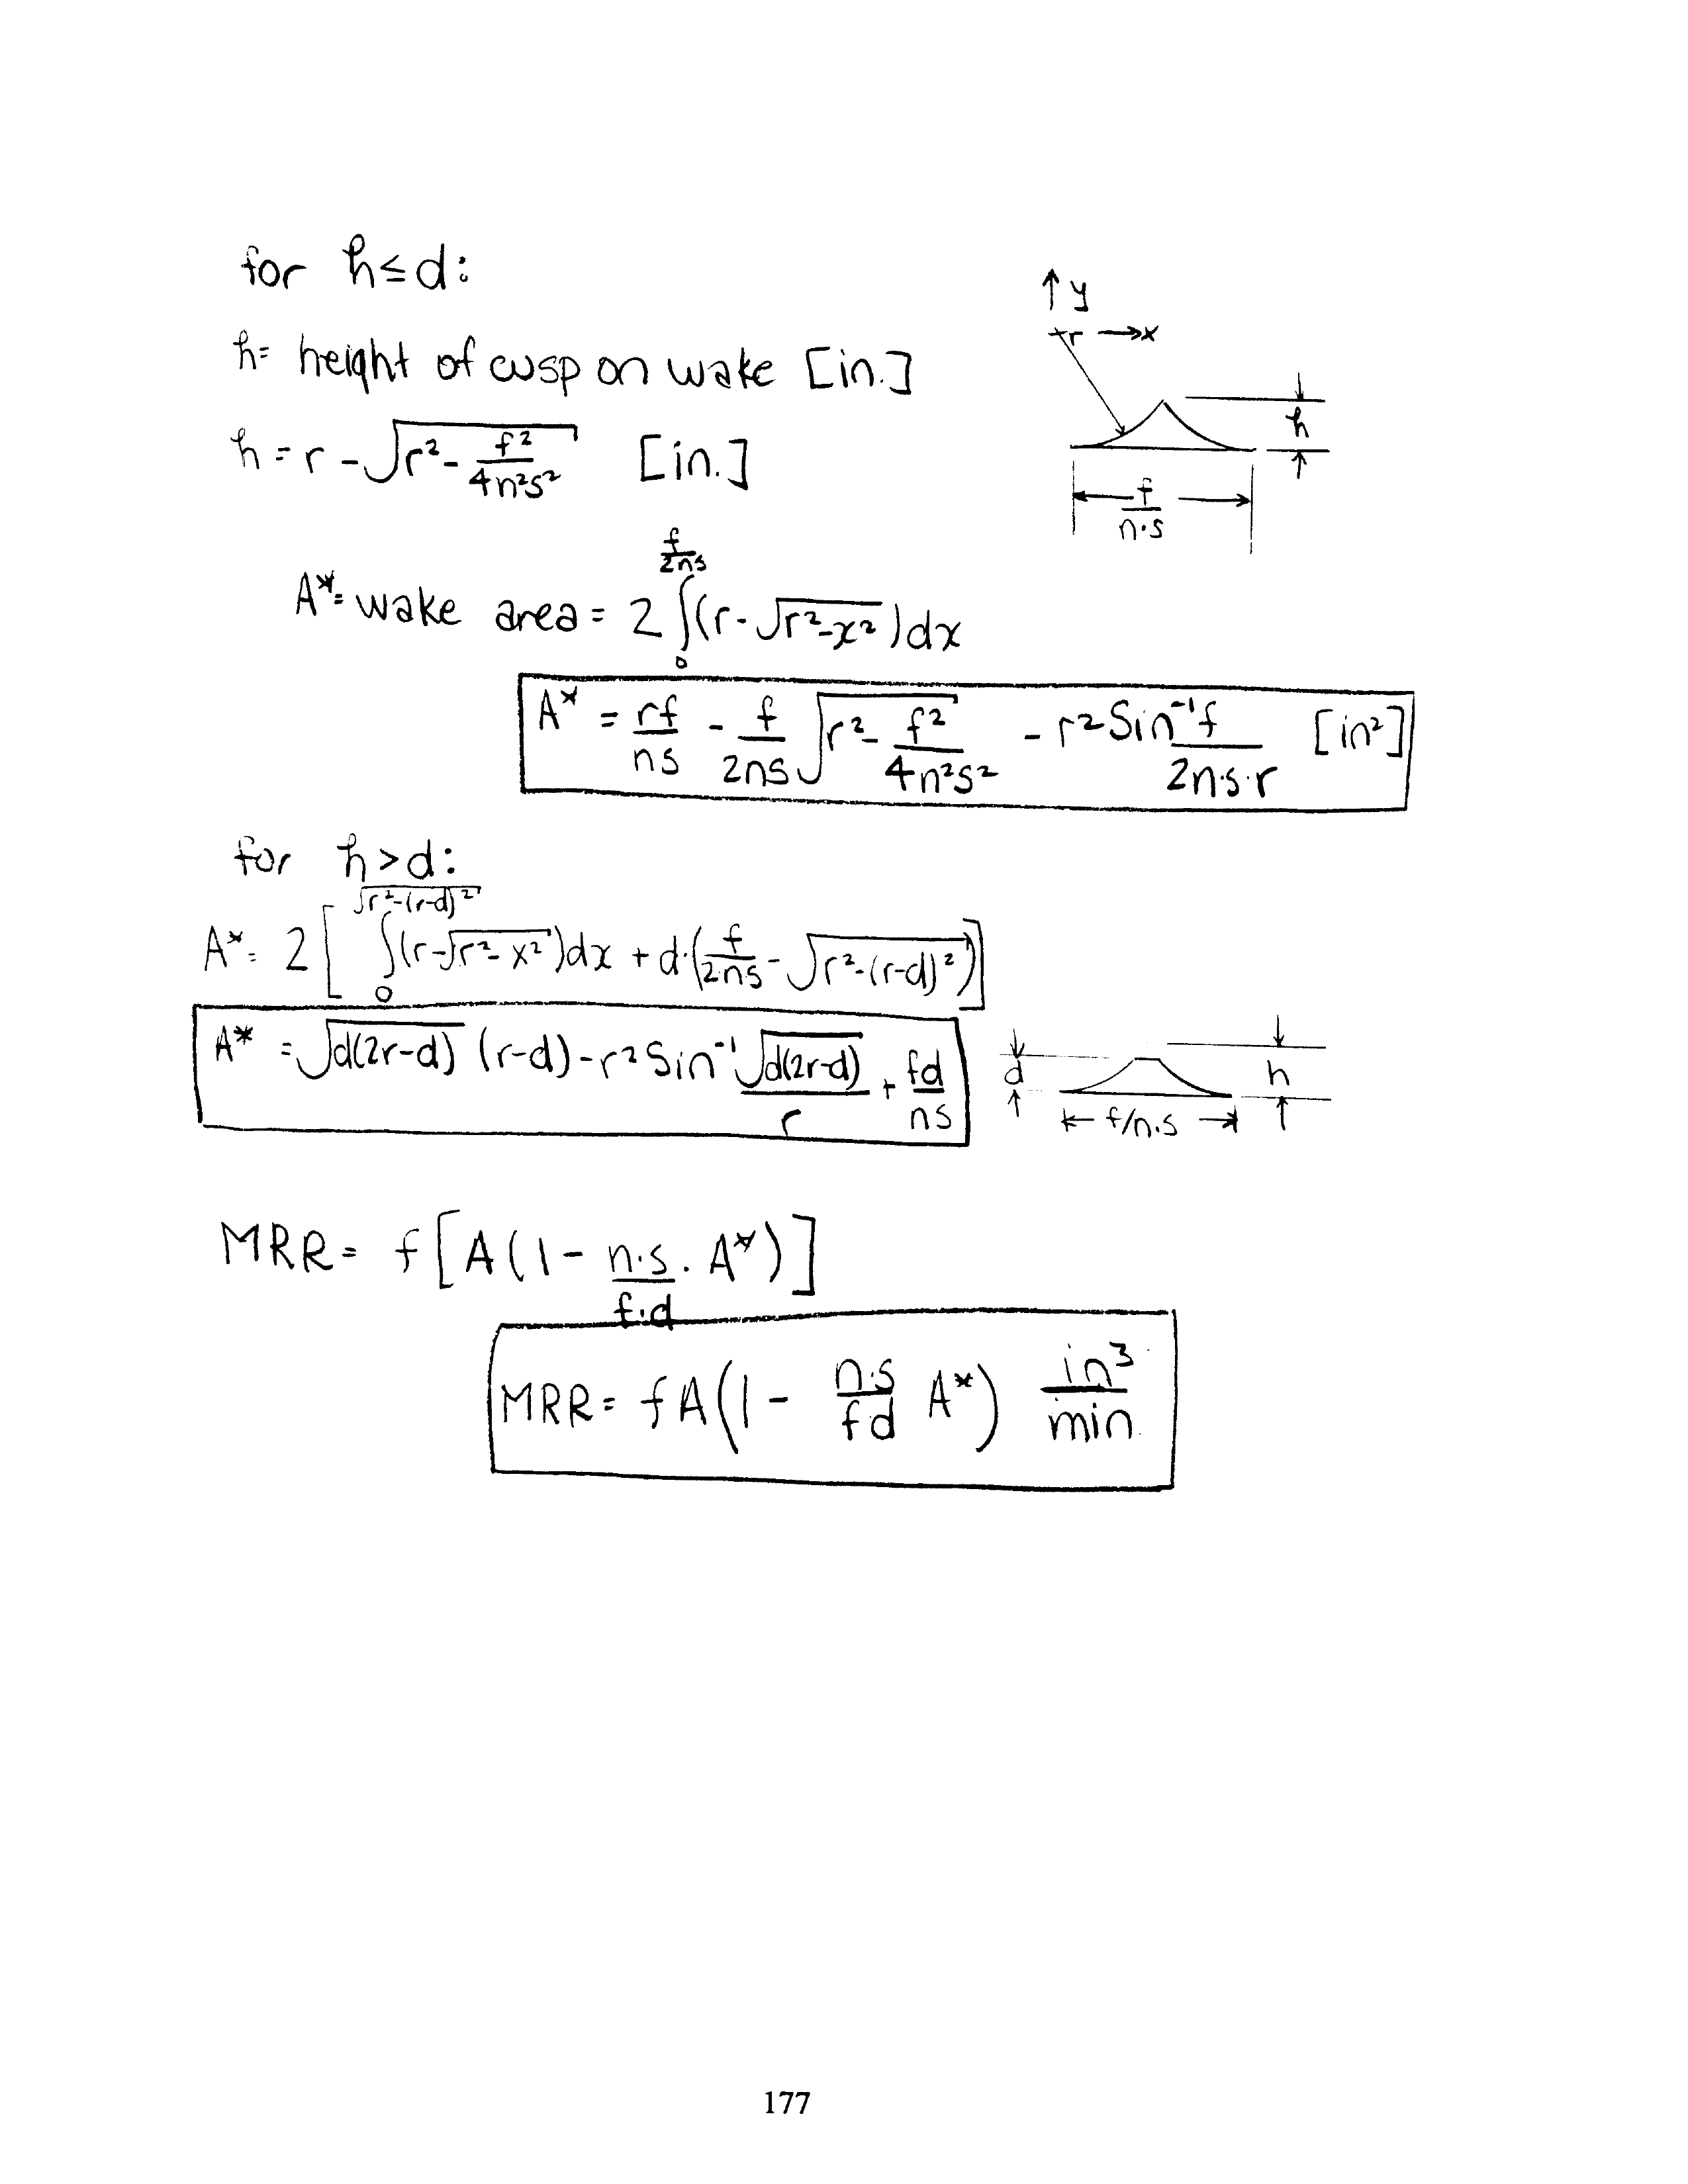 for h≤d:
↑ y
r → x
h= height of cusp on wake [in.]
h = r - √(r² - f²/4n²s²) [in.]
h
f/n·s
A*= wake area = 2 ∫₀^(f/2ns) (r-√(r²-x²)) dx
A* = rf/ns - f/2ns √(r² - f²/4n²s²) - r² Sin⁻¹ f/2n·s·r [in²]
for h>d:
A*= 2[ ∫₀^(√(r²-(r-d)²)) (r-√(r²-x²)) dx + d·(f/2·n·s - √(r²-(r-d)²)) ]
A* = √(d(2r-d)) (r-d) - r² Sin⁻¹ √(d(2r-d))/r + fd/ns
d
h
f/n·s
MRR= f[A(1- n·s/f·d · A*)]
MRR= fA(1- n·s/fd A*) in³/min.
177